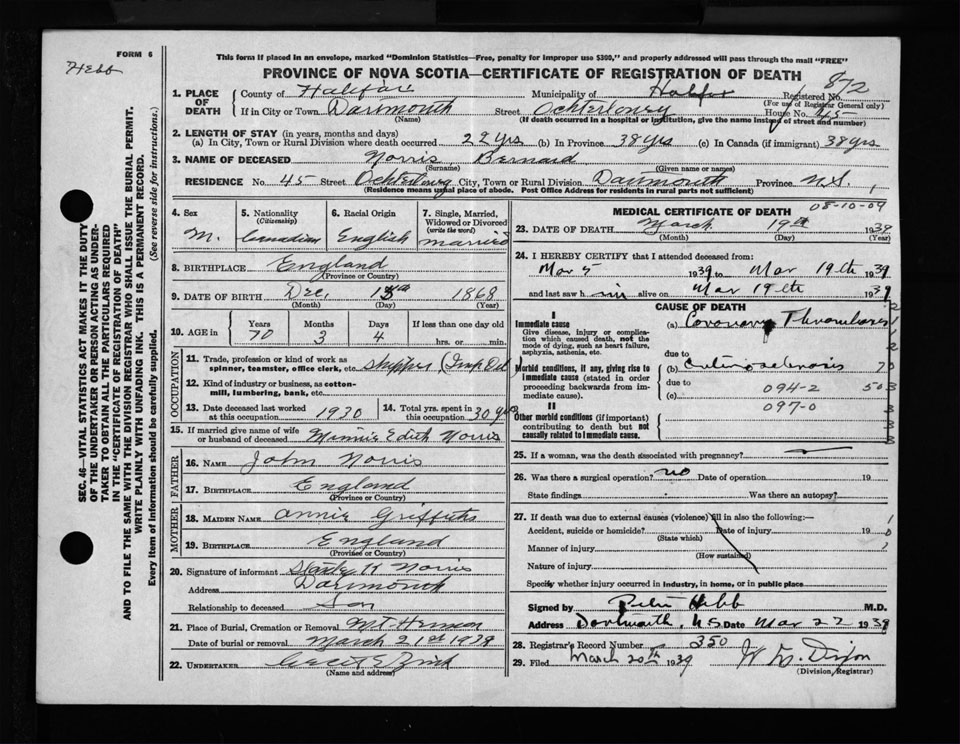 FORM 6
Hebb
This form if placed in an envelope, marked "Dominion Statistics—Free, penalty for improper use $300," and properly addressed will pass through the mail "FREE"
PROVINCE OF NOVA SCOTIA—CERTIFICATE OF REGISTRATION OF DEATH
872
1. PLACE OF DEATH
County of Halifax Municipality of Halifax Registered No.
(For use of Registrar General only)
If in City or Town Dartmouth Street Ochterloney House No. 45
(Name) (If death occurred in a hospital or institution, give the name instead of street and number)
2. LENGTH OF STAY (in years, months and days)
(a) In City, Town or Rural Division where death occurred 22 yrs (b) In Province 38 yrs (c) In Canada (if immigrant) 38 yrs
3. NAME OF DECEASED Norris Bernard
(Surname) (Given name or names)
RESIDENCE No. 45 Street Ochterloney City, Town or Rural Division Dartmouth Province N.S.
(Residence means usual place of abode. Post Office Address for residents in rural parts not sufficient)
4. Sex
M.
5. Nationality (Citizenship)
Canadian
6. Racial Origin
English
7. Single, Married, Widowed or Divorced (write the word)
married
8. BIRTHPLACE England
(Province or Country)
9. DATE OF BIRTH Dec. 15th 1868
(Month) (Day) (Year)
10. AGE in
Years Months Days If less than one day old
70 3 4 hrs. or min.
OCCUPATION
11. Trade, profession or kind of work as spinner, teamster, office clerk, etc. shipper (Imp Oil)
12. Kind of industry or business, as cotton-mill, lumbering, bank, etc.
13. Date deceased last worked at this occupation 1930
14. Total yrs. spent in this occupation 30 yrs
15. If married give name of wife or husband of deceased Minnie Edith Norris
FATHER
16. NAME John Norris
17. BIRTHPLACE England
(Province or Country)
MOTHER
18. MAIDEN NAME Annie Griffiths
19. BIRTHPLACE England
(Province or Country)
20. Signature of informant H Norris
Address Dartmouth
Relationship to deceased Son
21. Place of Burial, Cremation or Removal Mt. Hermon
Date of burial or removal March 21st 1939
22. UNDERTAKER Zink
(Name and address)
MEDICAL CERTIFICATE OF DEATH
08-10-09
23. DATE OF DEATH March 19th 1939
(Month) (Day) (Year)
24. I HEREBY CERTIFY that I attended deceased from:
Mar 5 1939 to Mar 19th 1939
and last saw him alive on Mar 19th 1939
CAUSE OF DEATH
I
Immediate cause
Give disease, injury or complication which caused death, not the mode of dying, such as heart failure, asphyxia, asthenia, etc.
(a) Coronary Thrombosis
due to
Morbid conditions, if any, giving rise to immediate cause (stated in order proceeding backwards from immediate cause).
(b) Arteriosclerosis
due to 094-2 503
(c)
097-0
II
Other morbid conditions (if important) contributing to death but not causally related to immediate cause.
25. If a woman, was the death associated with pregnancy?
26. Was there a surgical operation? no Date of operation 19
State findings Was there an autopsy?
27. If death was due to external causes (violence) fill in also the following:—
Accident, suicide or homicide? Date of injury 19
(State which)
Manner of injury
(How sustained)
Nature of injury
Specify whether injury occurred in industry, in home, or in public place
Signed by Hebb M.D.
Address Dartmouth, N.S. Date Mar 22 1939
28. Registrar's Record Number 350
29. Filed March 20th 1939 Dixon
(Division Registrar)
SEC. 46—VITAL STATISTICS ACT MAKES IT THE DUTY
OF THE UNDERTAKER OR PERSON ACTING AS UNDERTAKER
TO OBTAIN ALL THE PARTICULARS REQUIRED
IN THE "CERTIFICATE OF REGISTRATION OF DEATH"
AND TO FILE THE SAME WITH THE DIVISION REGISTRAR WHO SHALL ISSUE THE BURIAL PERMIT.
WRITE PLAINLY WITH UNFADING INK. THIS IS A PERMANENT RECORD.
Every item of information should be carefully supplied. (See reverse side for instructions.)